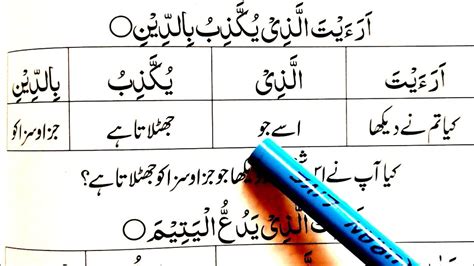 اَرَءَیْتَ الَّذِیْ یُكَذِّبُ بِالدِّیْنِ ○
اَرَءَیْتَ الَّذِیْ یُكَذِّبُ بِالدِّیْنِ
کیا تم نے دیکھا اسے جو جھٹلاتا ہے جزا و سزا کو
کیا آپ نے اس جو جزا و سزا کو جھٹلاتا ہے؟
الَّذِیْ یَدُعُّ الْیَتِیْمَ ○